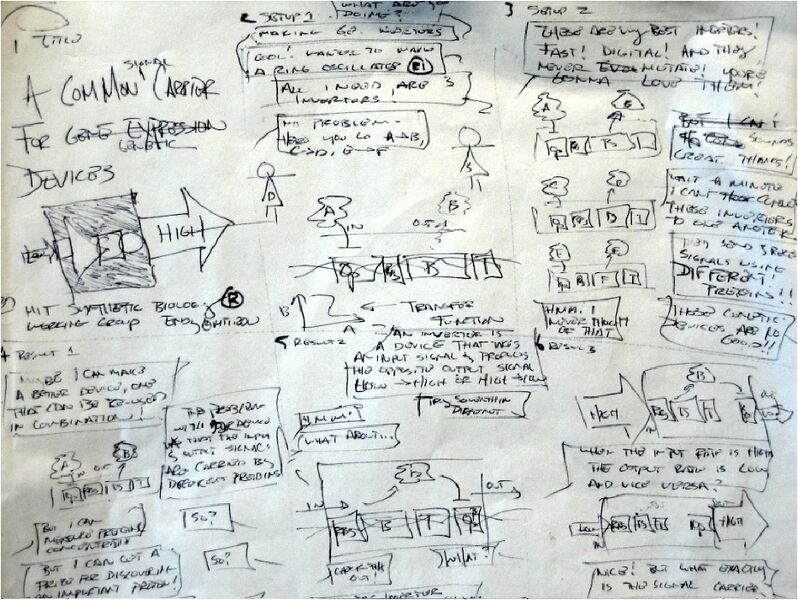 1 TITLE
A COMMON SIGNAL CARRIER
FOR GENE EXPRESSION
GENETIC
DEVICES
HIGH
MIT SYNTHETIC BIOLOGY
WORKING GROUP
R
2 SETUP 1
WHAT ARE YOU
DOING?
MAKING
INVERTERS
COOL! WANTED TO MAKE
A RING OSCILLATOR
ALL I NEED ARE
INVERTERS!
NO PROBLEM.
HERE YOU GO A→B,
C→D, E→F
D
S
A
IN
B
TRANSFER
FUNCTION
B
A
AN INVERTER IS
A DEVICE THAT TAKES
AN INPUT SIGNAL & PRODUCES
THE OPPOSITE OUTPUT SIGNAL
LOW → HIGH OR HIGH → LOW
3 SETUP 2
THESE ARE MY BEST INVERTERS!
FAST! DIGITAL! AND THEY
NEVER EVEN MUTATE! YOU'RE
GONNA LOVE THEM!
BUT I CAN'T
SOUNDS
GREAT THANKS!
WAIT A MINUTE
I CAN'T
THESE INVERTERS
TO ONE ANOTHER
THEY SEND &
SIGNALS USING
DIFFERENT
PROTEINS!!
HMM. I
NEVER THOUGHT
OF THAT
THESE GENETIC
DEVICES ARE NO
GOOD!!
4 RESULT 1
MAYBE I CAN MAKE
A BETTER DEVICE, ONE
THAT CAN BE REUSED
IN COMBINATION!
THE PROBLEM
WITH DEVICE
THAT THE INPUT
& OUTPUT SIGNALS
ARE CARRIED BY
DIFFERENT PROTEINS
A
B
BUT I CAN
MEASURE PROTEIN
CONCENTRATION
SO?
BUT I CAN GET A
PRIZE FOR DISCOVERING
AN IMPORTANT PROTEIN!
SO?
5 RESULT 2
TRY SOMETHING
DIFFERENT
HMM.
WHAT ABOUT...
B
IN
OUT
RBS
B
T
CHECK THIS
OUT!
WHAT?
INVERTER
6 RESULT 3
HIGH
B
RBS
IN
WHEN THE INPUT RATE IS HIGH
THE OUTPUT RATE IS LOW
AND VICE VERSA?
LOW
RBS
HIGH
IN
NICE! BUT WHAT EXACTLY
IS THE SIGNAL CARRIER